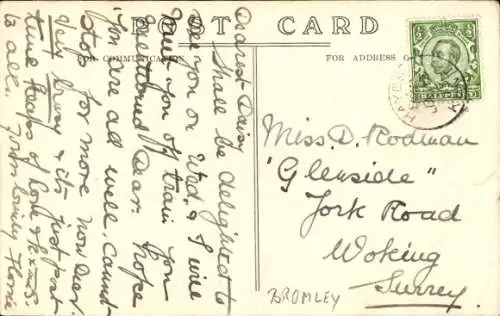 POST CARD
FOR COMMUNICATION
FOR ADDRESS O
HAYES
Dearest Daisy
Shall be delighted to
see you on Wed. & I will
meet you off train you
mentioned Dear. hope
you are all well. Cannot
stop for more now dear.
Very busy & its just post
time. Heaps of love & xxxs
to all. from loving Florrie
Miss. D. Rodman
"Glenside"
York Road
Woking
Surrey.
BROMLEY